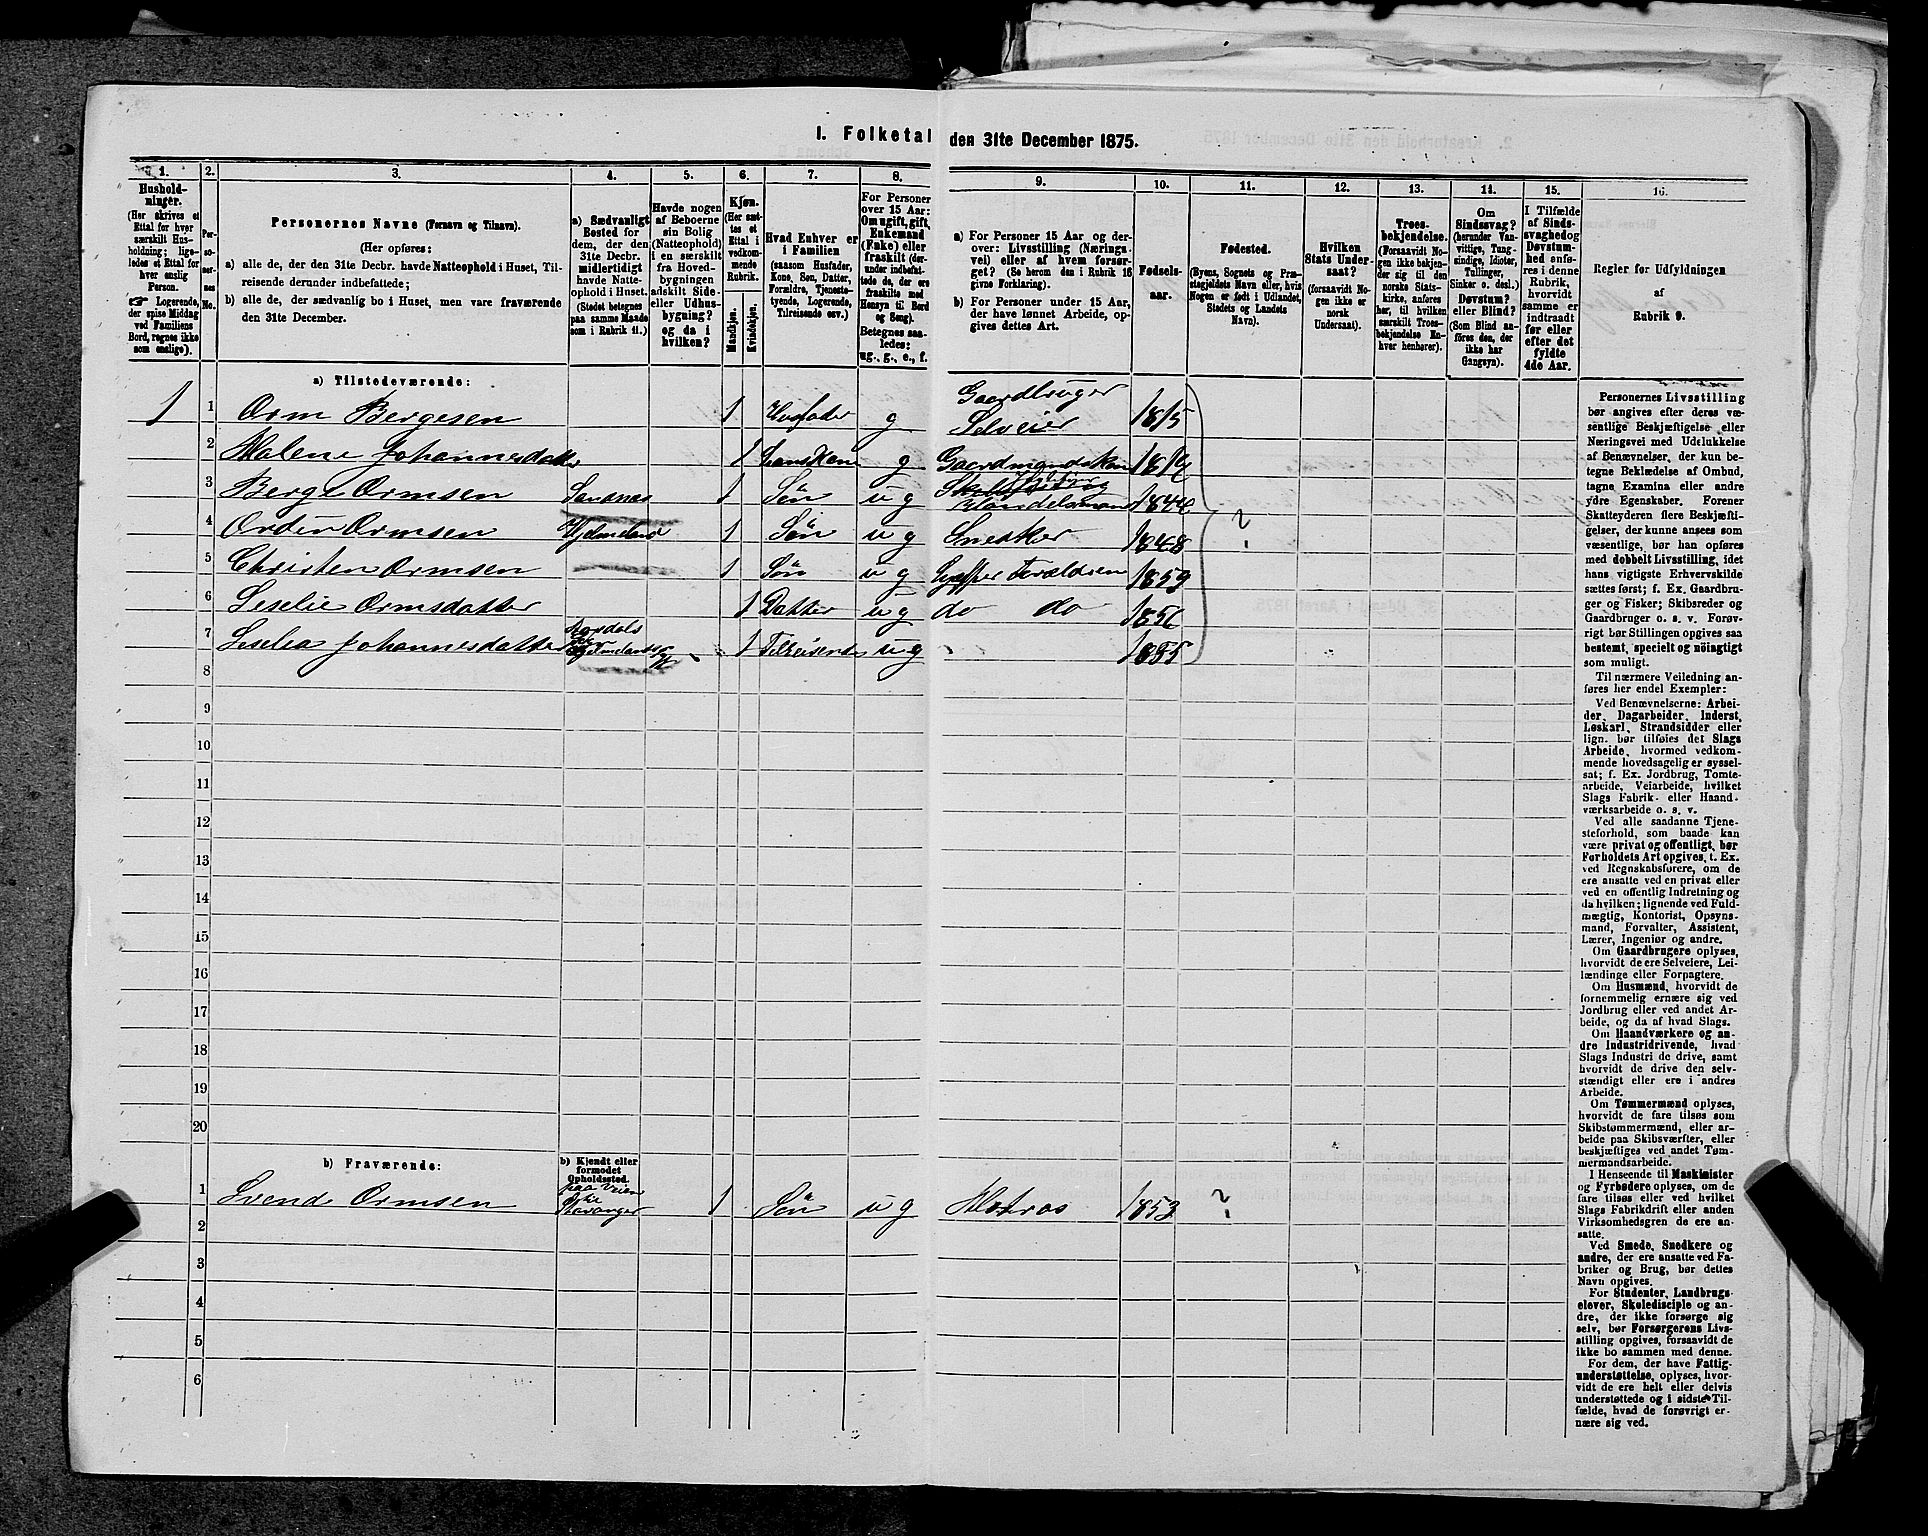 I. Folketal den 31te December 1875.
1. 2. 3. 4. 5. 6. 7. 8. 9. 10. 11. 12. 13. 14. 15. 16.
Hushold-
ninger.
(Her skrives et
Ettal for hver
særskilt Hus-
holdning; lige-
ledes et Ettal for
hver enslig
Person.
☞ Logerende,
der spise Middag
ved Familiens
Bord, regnes ikke
som enslige).
Per-
so-
ner-
nes
No.
Personernes Navne (Fornavn og Tilnavn).
(Her opføres:
a) alle de, der den 31te Decbr. havde Natteophold i Huset, Til-
reisende derunder indbefattede;
b) alle de, der sædvanlig bo i Huset, men vare fraværende
den 31te December.
a) Sædvanligt
Bosted for
dem, der den
31te Decbr.
midlertidigt
havde Natte-
ophold i Huset.
(Stedet betegnes
paa samme Maade
som i Rubrik 11.)
Havde nogen
af Beboerne
sin Bolig
(Natteophold)
i en særskilt
fra Hoved-
bygningen
adskilt Side-
eller Udhus-
bygning?
og da i
hvilken?
Kjøn.
(Her sæt-
tes et
Ettal i
vedkom-
mende
Rubrik.
Mandkjøn.
Kvindekjøn.
Hvad Enhver er
i Familien
(saasom Husfader,
Kone, Søn, Datter,
Forældre, Tjeneste-
tyende, Logerende,
Tilreisende osv.)
For Personer
over 15 Aar:
Om ugift, gift,
Enkemand
(Enke) eller
fraskilt (der-
under indbefat-
tede de, der ere
fraskilte med
Hensyn til Bord
og Seng).
Betegnes saa-
ledes:
ug., g., e., f.
a) For Personer 15 Aar og der-
over: Livsstilling (Nærings-
vei) eller af hvem forsør-
get? (Se herom den i Rubrik 16
givne Forklaring).
b) For Personer under 15 Aar,
der have lønnet Arbeide, op-
gives dettes Art.
Fødsels-
aar.
Fødested.
(Byens, Sognets og Præ-
stegjeldets Navn eller, hvis
Nogen er født i Udlandet,
Stedets og Landets
Navn).
Hvilken
Stats Under-
saat?
(forsaavidt No-
gen ikke er
norsk
Undersaat).
Troes-
bekjendelse.
(Forsaavidt No-
gen ikke bekjen-
der sig til den
norske Stats-
kirke, anføres
her, til hvilken
særskilt Troes-
bekjendelse En-
hver henhører).
Om
Sindssvag?
(herunder Van-
vittige, Tung-
sindige, Idioter,
Tullinger,
Sinker o. desl.)
Døvstum?
eller Blind?
(Som Blind an-
føres den, der
ikke har
Gangsyn).
I Tilfælde
af Sinds-
svaghed og
Døvstum-
hed anfø-
res i denne
Rubrik,
hvorvidt
samme er
indtraadt
før eller
efter det
fyldte
4de Aar.
Regler for Udfyldningen
af
Rubrik 9.
a) Tilstedeværende:
1 1 Orm Bergesen 1 Husfader g Gaardbruger Selveier 1815
2 Malene Johannesdatter 1 hans Kone g 181
3 Berge Ormsen Sandnæs 1 Søn ug Handelsmand 1844
4 Ormsen Hjelmeland 1 Søn ug Snedker 1848 ?
5 Christen Ormsen 1 Søn ug hjælper Forældren 1859
6 Seselie Ormsdatter 1 Datter ug do do 1856
7 Seselia Johannesdatter 1 Tilreisende ug 1855
8
9
10
11
12
13
14
15
16
17
18
19
20
b) Fraværende:
b) Kjendt eller
formodet
Opholdssted.
1 Svend Ormsen paa Veien til Stavanger 1 Søn ug Matros 1853 ?
2
3
4
5
6
Personernes Livsstilling
bør angives efter deres væ-
sentlige Beskjæftigelse eller
Næringsvei med Udelukkelse
af Benævnelser, der kun be-
tegne Beklædelse af Ombud,
tagne Examina eller andre
ydre Egenskaber. Forener
Skatteyderen flere Beskjæfti-
gelser, der kunne ansees som
væsentlige, bør han opføres
med dobbelt Livsstilling, idet
hans vigtigste Erhvervskilde
sættes først; f. Ex. Gaardbru-
ger og Fisker; Skibsreder og
Gaardbruger o. s. v. Forøv-
rigt bør Stillingen opgives saa
bestemt, specielt og nøiagtigt
som muligt.
Til nærmere Veiledning an-
føres her endel Exempler:
Ved Benævnelserne: Arbei-
der, Dagarbeider, Inderst,
Løskarl, Strandsidder eller
lign. bør tilføies det Slags
Arbeide, hvormed vedkom-
mende hovedsagelig er syssel-
sat; f. Ex. Jordbrug, Tomte-
arbeide, Veiarbeide, hvilket
Slags Fabrik- eller Haand-
værksarbeide o. s. v.
Ved alle saadanne Tjene-
steforhold, som baade kan
være privat og offentlig, bør
Forholdets Art opgives, t. Ex.
ved Regnskabsførere, om de
ere ansatte ved en privat eller
ved en offentlig Indretning og
da hvilken; lignende ved Fuld-
mægtig, Kontorist, Opsyns-
mand, Forvalter, Assistent,
Lærer, Ingeniør og andre.
Om Gaardbrugere oplyses,
hvorvidt de ere Selveiere, Lei-
lændinge eller Forpagtere.
Om Husmænd, hvorvidt de
fornemmelig ernære sig ved
Jordbrug eller ved andet Ar-
beide, og da af hvad Slags.
Om Haandværkere og an-
dre Industridrivende, hvad
Slags Industri de drive, samt
hvorvidt de drive den selv-
stændigt eller ere i andres
Arbeide.
Om Tømmermænd oplyses,
hvorvidt de fare tilsøs som
Skibstømmermænd, eller ar-
beide paa Skibsværfter, eller
beskjæftiges ved andet Tøm-
mermandsarbeide.
I Henseende til Maskinister
og Fyrbødere oplyses, om de
fare tilsøs eller ved hvilket
Slags Fabrikdrift eller anden
Virksomhedsgren de ere an-
satte.
Ved Smede, Snedkere og
andre, der ere ansatte ved Fa-
briker og Brug, bør dettes
Navn opgives.
For Studenter, Landbrugs-
elever, Skoledisciple og an-
dre, der ikke forsørge sig
selv, bør Forsørgerens Livs-
stilling opgives, forsaavidt de
ikke bo sammen med denne.
For dem, der have Fattig-
understøttelse, oplyses, hvor-
vidt de ere helt eller delvis
understøttede og i sidste Til-
fælde, hvad de forøvrigt er-
nære sig ved.